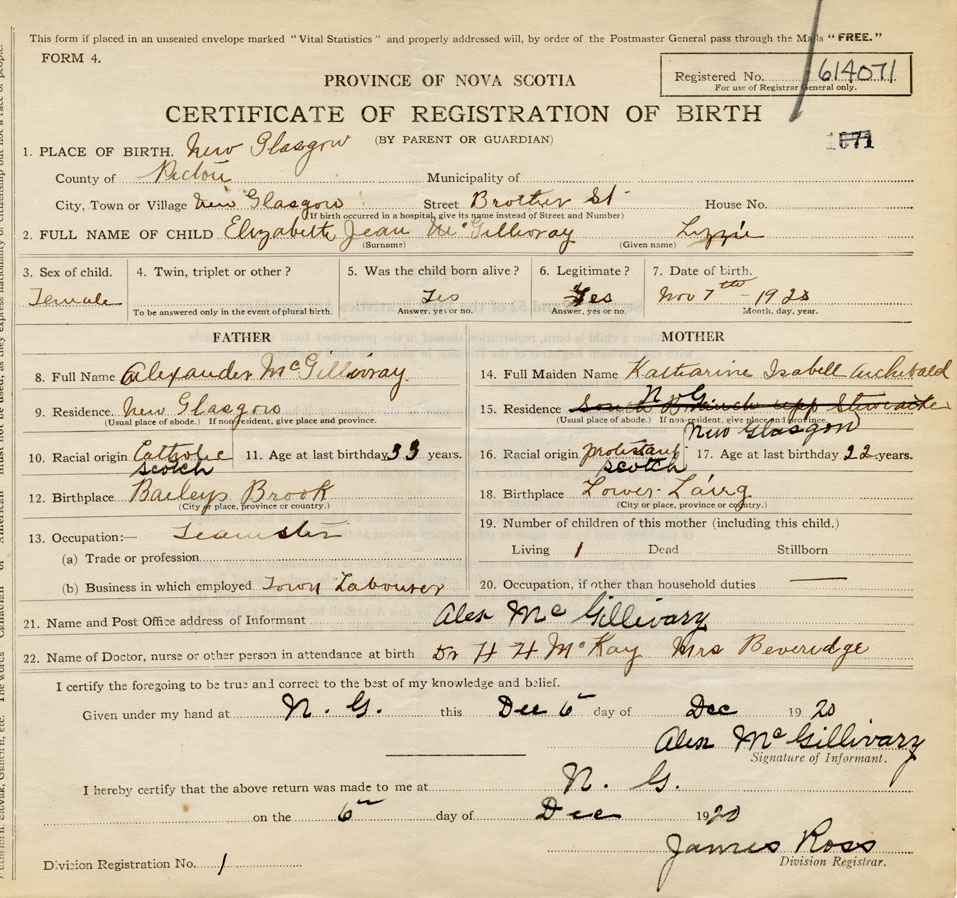 This form if placed in an unsealed envelope marked "Vital Statistics" and properly addressed will, by order of the Postmaster General pass through the Mails "FREE."
FORM 4.
PROVINCE OF NOVA SCOTIA
Registered No. 614071
For use of Registrar General only.
CERTIFICATE OF REGISTRATION OF BIRTH
(BY PARENT OR GUARDIAN)
1. PLACE OF BIRTH. New Glasgow
County of Pictou Municipality of
City, Town or Village New Glasgow Street Brother St House No.
(If birth occurred in a hospital, give its name instead of Street and Number)
2. FULL NAME OF CHILD Elizabeth Jean McGillivray Lizzie
(Surname) (Given name)
3. Sex of child. 4. Twin, triplet or other? 5. Was the child born alive? 6. Legitimate? 7. Date of birth.
Female Yes Yes Nov 7th - 1920
To be answered only in the event of plural birth. Answer, yes or no. Answer, yes or no. Month, day, year.
FATHER MOTHER
8. Full Name Alexander McGillivray 14. Full Maiden Name Katharine Isabell Archibald
N. G.
9. Residence. New Glasgow 15. Residence South Branch upp Stewiacke
(Usual place of abode.) If non-resident, give place and province. (Usual place of abode.) If non-resident, give place and province.
New Glasgow
10. Racial origin Catholic 11. Age at last birthday 33 years. 16. Racial origin protestant 17. Age at last birthday 22 years.
scotch scotch
12. Birthplace Baileys Brook 18. Birthplace Lower Lairg
(City or place, province or country.) (City or place, province or country.)
13. Occupation:— Teamster 19. Number of children of this mother (including this child.)
(a) Trade or profession Living 1 Dead Stillborn
(b) Business in which employed Town Labourer 20. Occupation, if other than household duties —
21. Name and Post Office address of Informant Alex McGillivary
22. Name of Doctor, nurse or other person in attendance at birth Dr H H McKay Mrs Beveridge
I certify the foregoing to be true and correct to the best of my knowledge and belief.
Given under my hand at N. G. this Dec 6 day of Dec 1920
Alex McGillivary
Signature of Informant.
I hereby certify that the above return was made to me at N. G.
on the 6 day of Dec 1920
James Ross
Division Registrar.
Division Registration No. 1